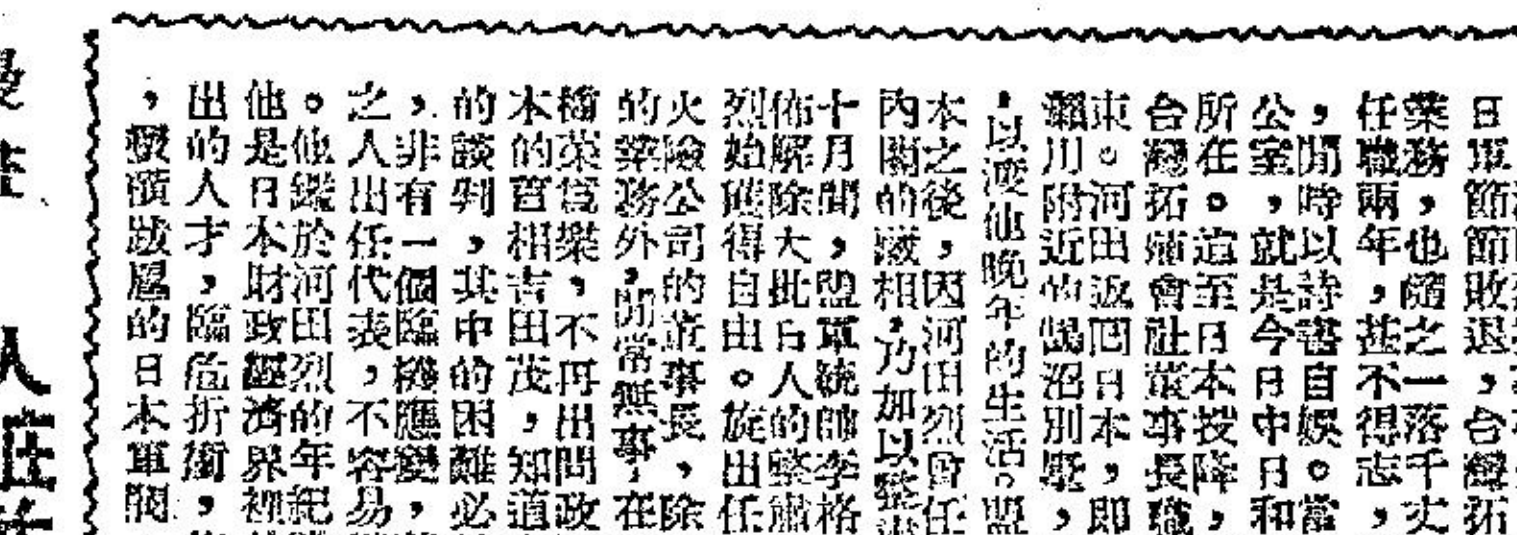 日軍節節敗退,台灣拓
業務,也隨之一落千丈
任職兩年,甚不得志,
,閒時以詩書自娛。當
公室,就是今日中日和
所在。這至日本投降,
台灣拓殖會社董事長職
東。河田返回日本,即
瀨川附近的鵠沼別墅,
,以渡他晚年的生活。盟
本之後,因河田烈曾任
內閣的藏相,乃加以整肅
十月間,盟軍統帥李格
佈解除大批日人的整肅
烈始獲得自由。旋出任
火險公司的董事長,除
的業務外,閒常無事,在
為樂,不再出問政
本的首相吉田茂,知道
的談判,其中的困難必
,非有一個臨機應變,
之人出任代表,不容易
。他鑑於河田烈的年紀
他是日本財政經濟界裡
出的人才,臨危折衝,
,跋扈的日本軍閥
人在